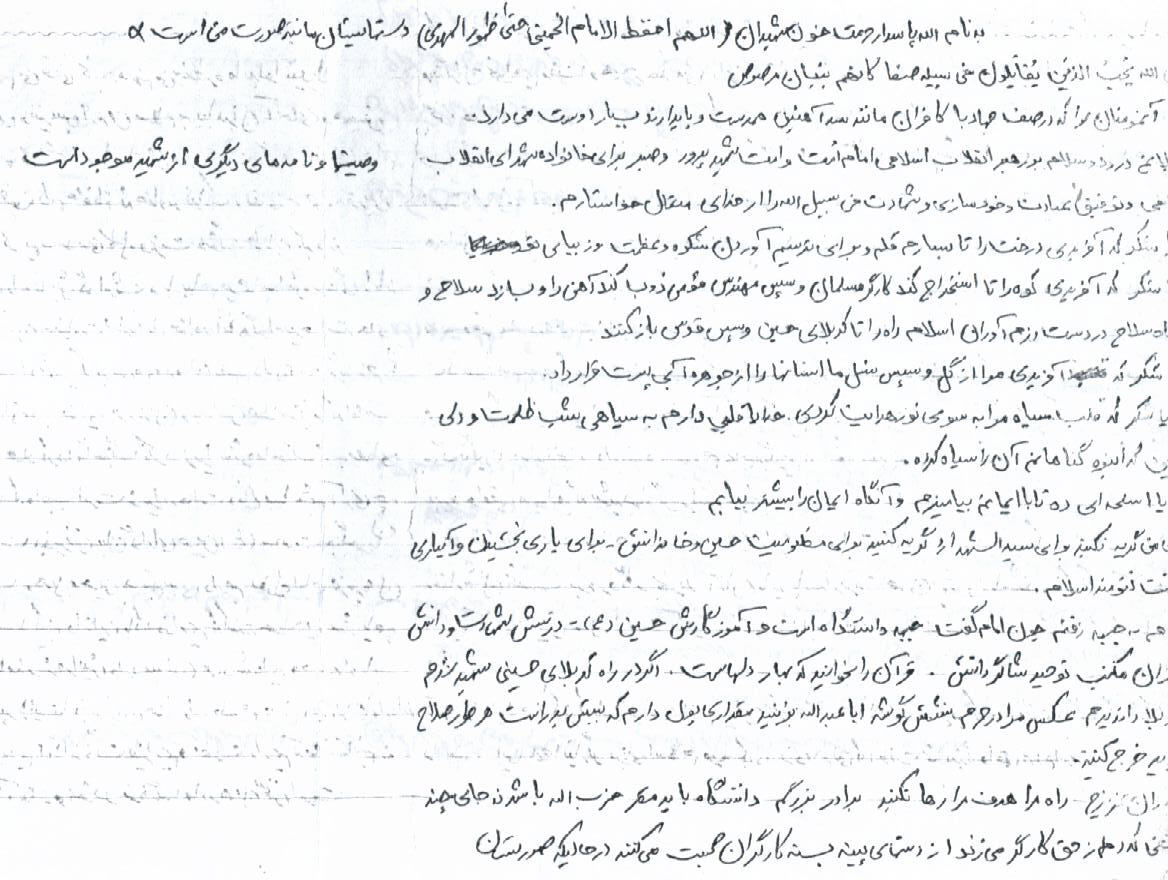 به نام الله پاسدار حرمت خون شهیدان (اللهم احفظ الامام الخمینی حتی ظهور المهدی) دستهایشان مانند صورت من است
الله یحب الذین یقاتلون فی سبیله صفا کانهم بنیان مرصوص
آنمومنان را که در صف جهاد با کافران مانند سد آهنین همدست و پایدارند بسیار دوست می دارد.
درود و سلام بر رهبر انقلاب اسلامی امام امت و امت شهید پرور و صبر برای خانواده شهدای انقلاب
وصیتها و نامه های دیگری از شهید موجود است
و توفیق عبادت و خودسازی و شهادت فی سبیل الله را از خدای متعال خواستارم.
شکر که آفریدی درخت را تا سازم قلم و برای ترسیم آوردن شکوه و عظمت و زیبایی
شکر که آفریدی کوه را تا استخراج کند کارگر مسلمان و سپس مهندس مؤمن ذوب کند آهن را و سازد سلاح و
سلاح در دست رزم آوران اسلام راه را تا کربلای حسین و سپس قدس باز کنند
شکر که آفریدی مرا از گل و سپس نسل ما انسانها را از جوهره آبی پست قرار داد
شکر که قلب سیاه مرا به سوی نور هدایت کردی. خدایا قلبی دارم به سیاهی شب ظلمت و دلی
که انبوه گناهانم آن را سیاه کرده.
اسلحه ای ده تا با ایمانم بیامیزم و آنگاه ایمان را بیشتر بیابم
من گریه نکنید برای سیدالشهدا گریه کنید برای مظلومیت حسین و خاندانش - برای یاری بخشیدن و آبیاری
تنومند اسلام.
به جبهه رفتم چون امام گفت جبهه دانشگاه است و آموزگارش حسین (ع) - درسش شهادت و دانش
مکتب توحید شاگردانش. قرآن را بخوانید که بهار دلهاست. اگر در راه کربلای حسینی شهید شدم
عکس مرا در حرم شش گوشه ابا عبدالله بزنید مقداری پول دارم که پیش پدر است هر طور صلاح
خرج کنید.
عزیزم راه مرا هدف مرا رها نکنید برادر بزرگم دانشگاه باید مقر حزب الله باشد نه جای چند
که دم از حق کارگر می زنند از دستهای پینه بسته کارگران صحبت می کنند در حالیکه صورتشان